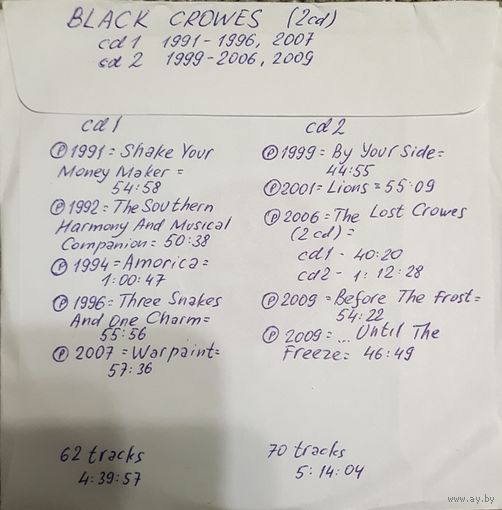 BLACK CROWES (2cd)
cd1 1991-1996, 2007
cd2 1999-2006, 2009
cd1
Ⓟ1991=Shake Your
Money Maker=
54:58
Ⓟ1992=The Southern
Harmony And Musical
Companion=50:38
Ⓟ1994=Amorica=
1:00:47
Ⓟ1996=Three Snakes
And One Charm=
55:56
Ⓟ2007=Warpaint=
57:36
62 tracks
4:39:57
cd2
Ⓟ1999=By Your Side=
44:55
Ⓟ2001=Lions=55:09
Ⓟ2006=The Lost Crowes
(2cd)=
cd1-40:20
cd2-1:12:28
Ⓟ2009=Before The Frost=
54:22
Ⓟ2009=...Until The
Freeze=46:49
70 tracks
5:14:04
www.ay.by